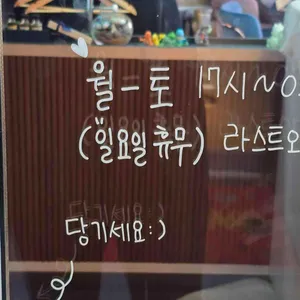 월-토 17시~0
(일요일 휴무) 라스트오
당기세요:)